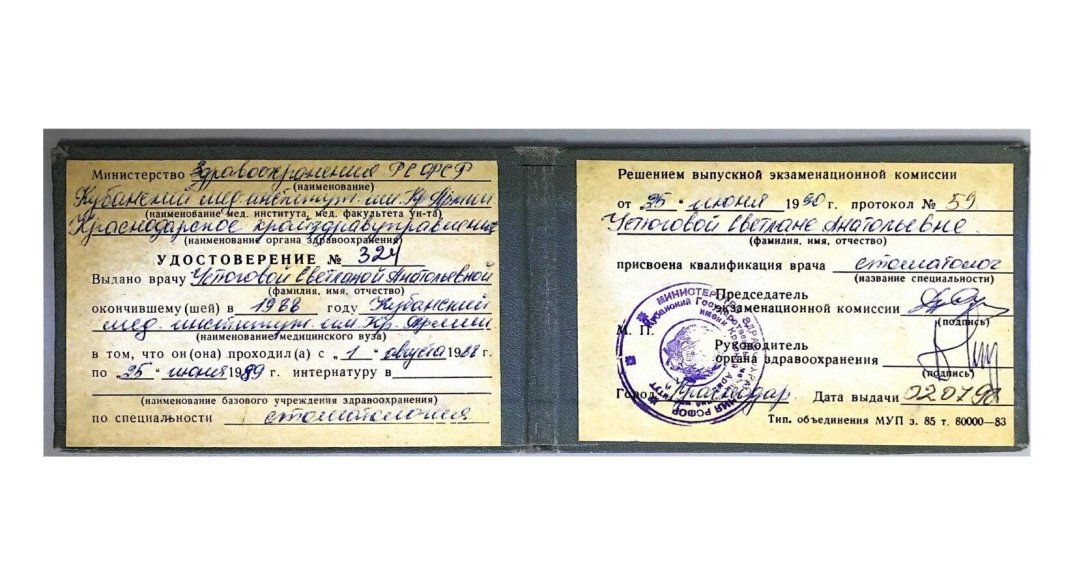 Министерство Здравоохранения РСФСР
(наименование)
Кубанский мед. институт. им. Кр. Армии
(наименование мед. института, мед. факультета ун-та)
Краснодарское крайздравуправление
(наименование органа здравоохранения)
УДОСТОВЕРЕНИЕ № 324
Выдано врачу Устюговой Светланой Анатольевной
(фамилия, имя, отчество)
окончившему (шей) в 1988 году Кубанский
мед. институт. им. Кр. Армии
(наименование медицинского вуза)
в том, что он (она) проходил (а) с „1" августа 1988 г.
по „25" июня 1989 г. интернатуру в
(наименование базового учреждения здравоохранения)
по специальности стоматология
Решением выпускной экзаменационной комиссии
от „25" июня 1990 г. протокол № 59
Устюговой Светлане Анатольевне
(фамилия, имя, отчество)
присвоена квалификация врача стоматолог
(название специальности)
Председатель
экзаменационной комиссии
(подпись)
М. П.
Руководитель
органа здравоохранения
(подпись)
Город Краснодар. Дата выдачи
Тип. объединения МУП з. 85 т. 80000—83